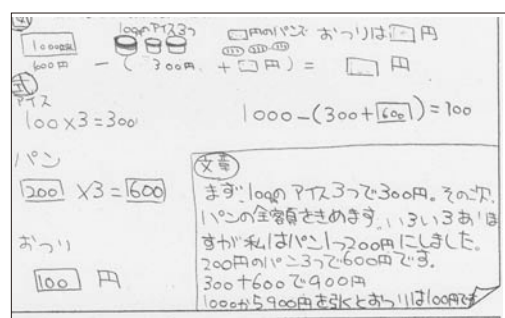 100円のアイス3つ □円のパンズ おつりは□円
1000円
600円 － ( 300円 ＋□円 ) = □円
式
アイス
100×3=300
1000－(300+600)=100
パン
200 ×3=600
おつり
100 円
文章
まず100円のアイス3つで300円。その次、
パンの全額をきめます。いろいろありま
すが私はパン1つ200円にしました。
200円のパン3つで600円です。
300+600で900円
1000から900円を引くとおつりは100円です